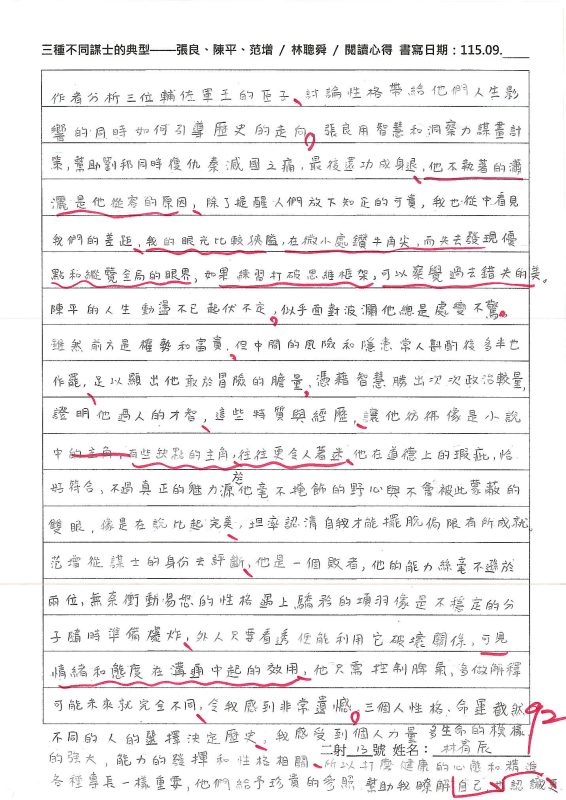 三種不同謀士的典型——張良、陳平、范增 / 林聰舜 / 閱讀心得 書寫日期：115.09.____
作者分析三位輔佐軍王的臣子，討論性格帶給他們人生影
響的同時如何引導歷史的走向，張良用智慧和洞察力謀畫計
策，幫助劉邦同時復仇秦滅國之痛，最後還功成身退，他不執著的瀟
灑是他從容的原因，除了提醒人們放下知足的可貴，我也從中看見
我們的差距，我的眼光比較狹隘，在微小處鑽牛角尖，而失去發現優
點和縱覽全局的眼界，如果練習打破思維框架，可以察覺過去錯失的美。
陳平的人生動盪不已起伏不定，似乎面對波瀾他總是處變不驚。
雖然前方是權勢和富貴，但中間的風險和隱患常人斟酌後多半也
作罷，足以顯出他敢於冒險的膽量，憑藉智慧勝出次次政治較量，
證明他過人的才智，這些特質與經歷，讓他彷彿像是小說
中的主角，有些缺點的主角，往往更令人著迷，他在道德上的瑕疵，恰
好符合，不過真正的魅力源於他毫不掩飾的野心與不會被此蒙蔽的
雙眼，像是在說比起完美，坦率認清自我才能擺脫侷限有所成就。
范增從謀士的身份去評斷，他是一個敗者，他的能力絲毫不遜於
兩位，無奈衝動易怒的性格遇上驕矜的項羽像是不穩定的分
子隨時準備爆炸，外人只要看透便能利用它破壞關係，可見
情緒和態度在溝通中起的效用，他只需控制脾氣，多做解釋
可能未來就完全不同，令我感到非常遺憾，三個人性格、命運截然
92
不同的人的選擇決定歷史，我感受到個人力量 多生命的模樣
二射 13 號 姓名：林
的強大，能力的發揮和性格相關，所以打磨健康的心態和精進
各種專長一樣重要，他們給予珍貴的參照 幫助我瞭解自己，也認識更